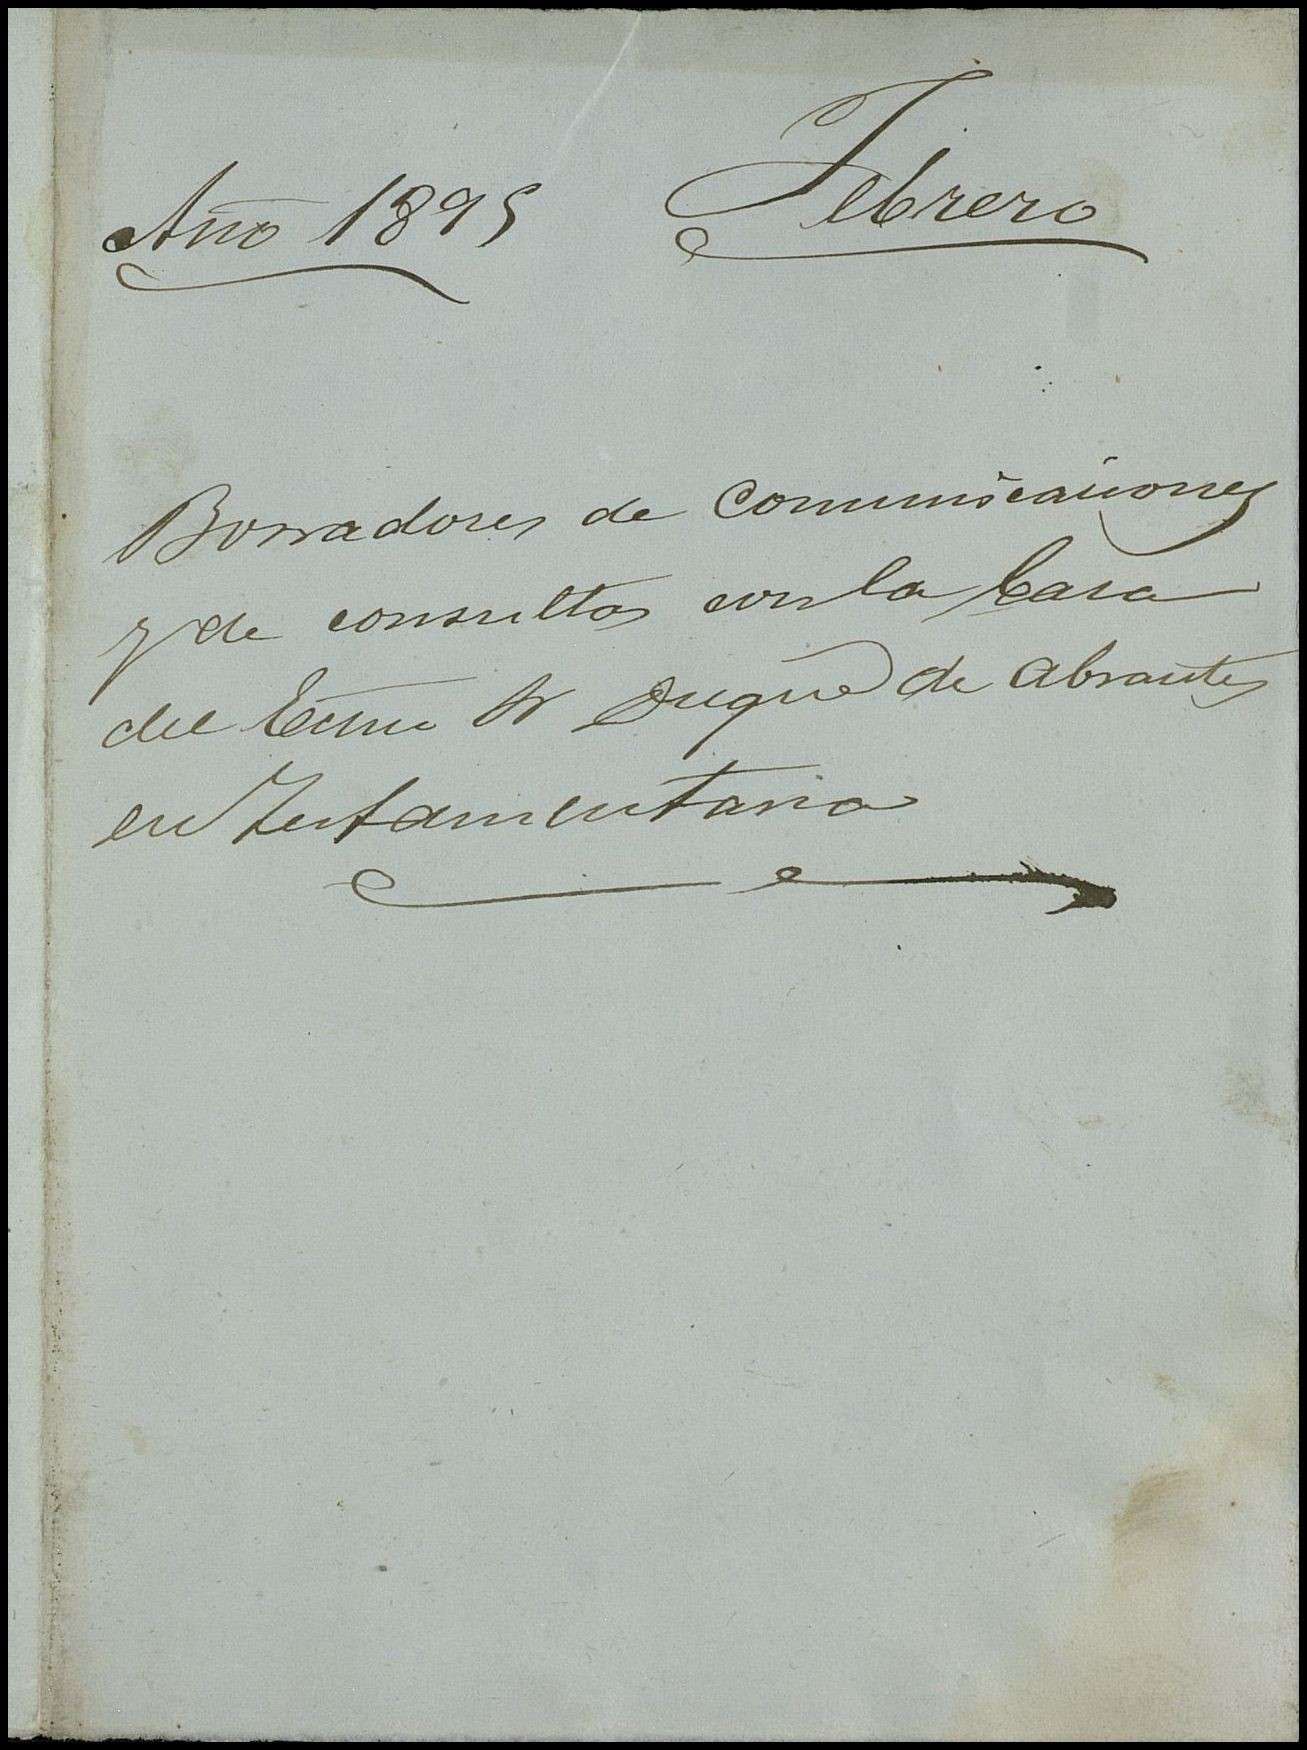 Año 1895 Febrero
Borradores de Comunicaciones
y de consultas con la Casa
del Excmo Sr Duque de Abrantes
en Testamentaria